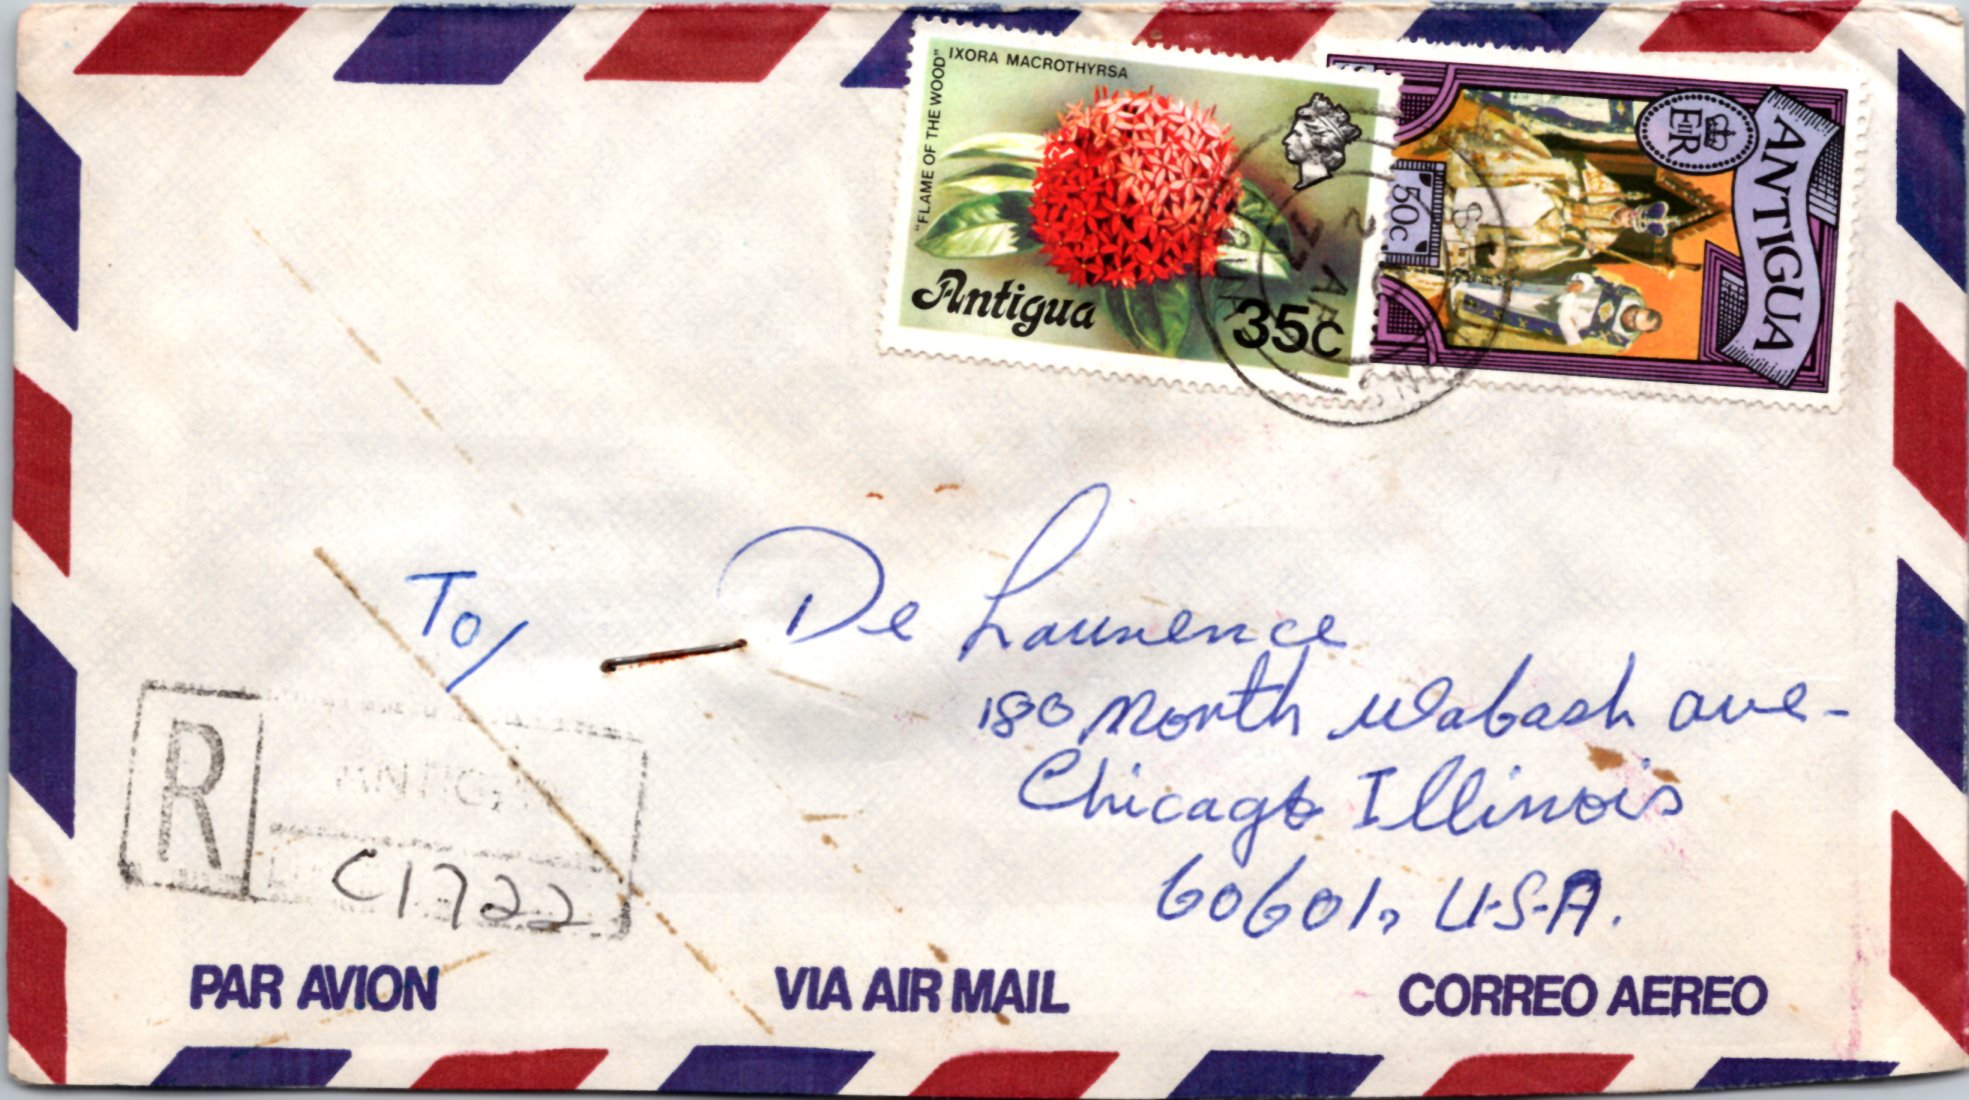 "FLAME OF THE WOOD" IXORA MACROTHYRSA
Antigua
35c
ANTIGUA
EIIR
50c
To/ De Laurence
180 North Wabash ave-
Chicago Illinois
60601, U-S-A.
R
ANTIGUA
C1722
PAR AVION VIA AIR MAIL CORREO AEREO